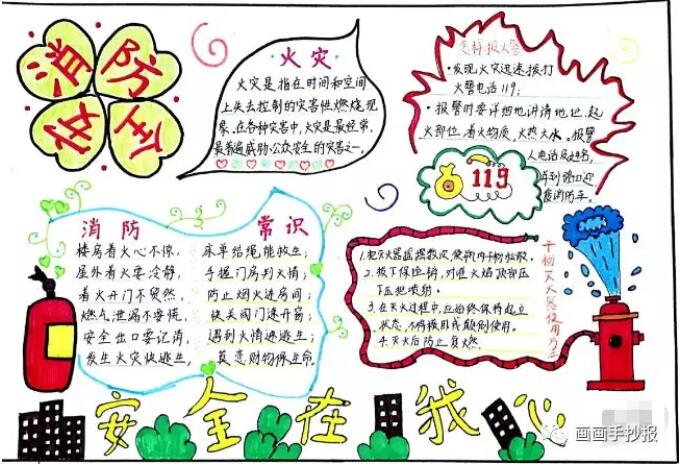 消防
安全
火灾
火灾是指在时间和空间
上失去控制的灾害性燃烧现
象。在各种灾害中,火灾是最经常、
最普遍威胁公众安全的灾害之一
怎样报火警
·发现火灾迅速拨打
火警电话119;
·报警时要详细地讲清地址、起
火部位、着火物质、火势大小。报警
人电话及姓名,
并到路口迎
接消防车。
119
消防 常识
楼房着火心不惊,床单结绳能救生;
屋外着火要冷静,手摸门房判火情;
着火开门不贸然,防止烟火进房间;
燃气泄漏不要慌,快关阀门速开窗;
安全出口要记清,遇到火情逃逃生;
发生火灾快逃生,莫恋财物保生命
干粉灭火器使用方法
1.把灭火器摇摆数次,使瓶内干粉松散。
2.拔下保险销,对准火焰根部压下
压把喷射。
3.在灭火过程中,应始终保持直立
状态,不得横卧或颠倒使用。
4.灭火后防止复燃
安全在我心
画画手抄报